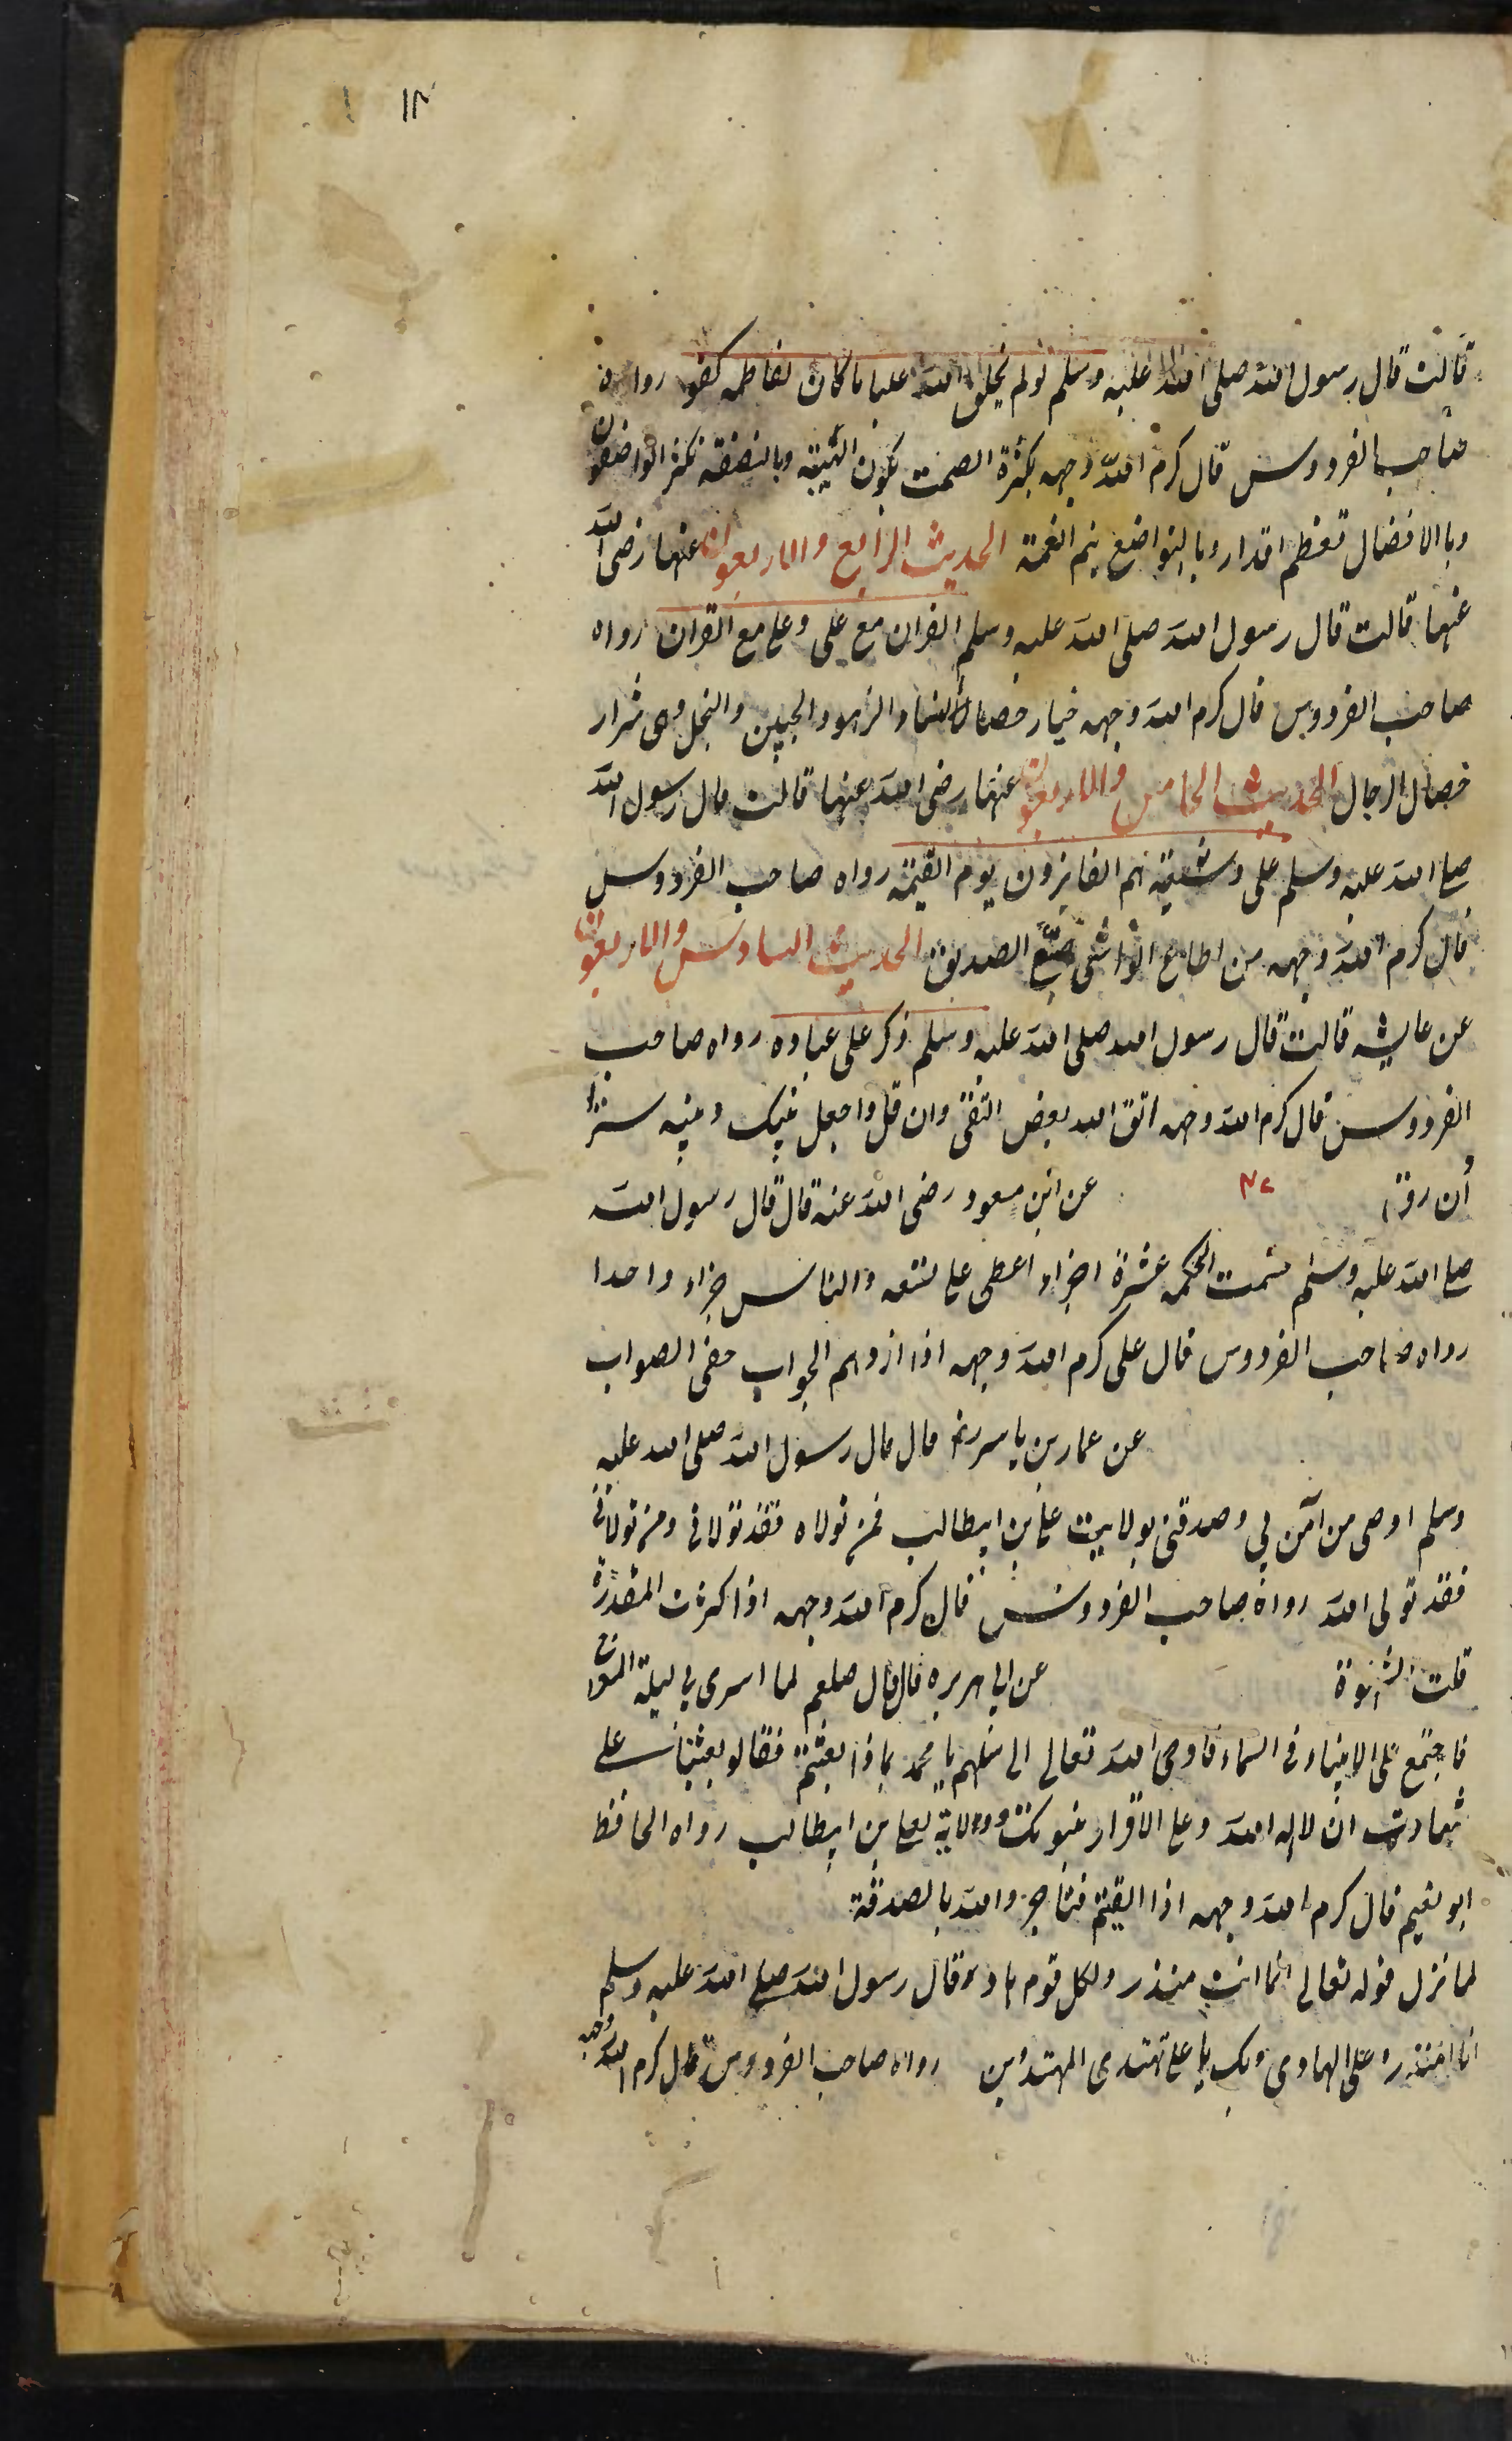 ١٢
قالت قال رسول الله صلى الله عليه وسلم لولم يخلق الله عليا ما كان لفاطمه كفو رواه
صاحب الفردوس قال كرم الله وجهه بكثرة الصمت يكون الهيبة وبالنصفة يكثر الواصفون
وبالافضال تعظم اقدار وبالتواضع يتم النعمة الحديث الرابع والاربعون عنها رضى الله
عنها قالت قال رسول الله صلى الله عليه وسلم القران مع على وعلى مع القران رواه
صاحب الفردوس قال كرم الله وجهه خيار خصال النساء الزهو والجبن والبخل وهى شرار
خصال الرجال الحديث الخامس والاربعون عنها رضى الله عنها قالت قال رسول الله
صلى الله عليه وسلم على وشيعته هم الفايزون يوم القيمة رواه صاحب الفردوس
قال كرم الله وجهه من اطاع الواشى ضيّع الصديق الحديث السادس والاربعون
عن عايشه قالت قال رسول الله صلى الله عليه وسلم ذكر على عباده رواه صاحب
الفردوس قال كرم الله وجهه اتق الله بعض التقى وان قل واجعل بينك وبينه سترا
وان رق ٤٧ عن ابن مسعود رضى الله عنه قال قال رسول الله
صلى الله عليه وسلم قسمت الحكمه عشرة اجزاء اعطى على تسعه والناس جزاء واحدا
رواه صاحب الفردوس قال على كرم الله وجهه اذا ازدهم الجواب خفى الصواب
عن عمار بن ياسر رضه قال قال رسول الله صلى الله عليه
وسلم اوصى من آمن بى وصدقنى بولايت على بن ابيطالب فمن تولاه فقد تولانى ومن تولانى
فقد تولى الله رواه صاحب الفردوس قال كرم الله وجهه اذا كثرت المقدرة
قلت الشهوة عن ابى هريره قال قال صلعم لما اسرى بى ليلة المعراج
فاجتمع على الانبياء فى السماء فاوحى الله تعالى الى سلهم يا محمد بماذا بعثتم فقالو بعثنا على
شهادت ان لا اله الله وعلى الاقرار بنبوتك وولاية لعلى بن ابيطالب رواه الحافظ
ابو نعيم قال كرم الله وجهه اذا القيتم فتاجروا الله بالصدقة
لما نزل قوله تعالى انما انت منذر ولكل قوم هاد قال رسول الله صلى الله عليه وسلم
انا المنذر وعلى الهادى وبك يا على تهتدى المهتدين رواه صاحب الفردوس قال كرم الله وجهه